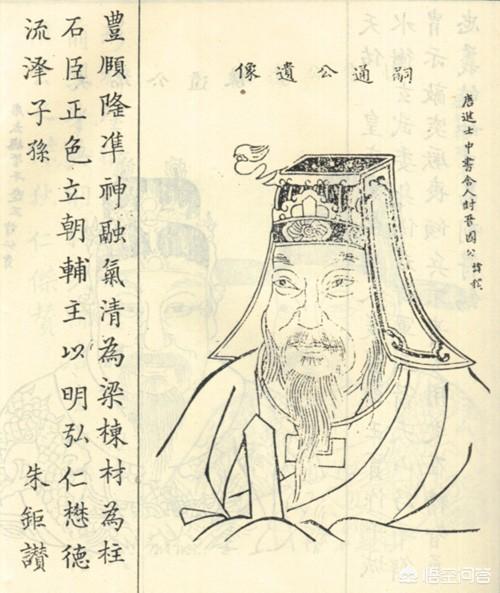 嗣通公遺像
唐進士中書令人封晉國公諱
豐頤隆凖神融氣清為梁棟材為柱
石臣正色立朝輔主以明弘仁懋德
流泽子孫 朱鉅讚
悟空问答